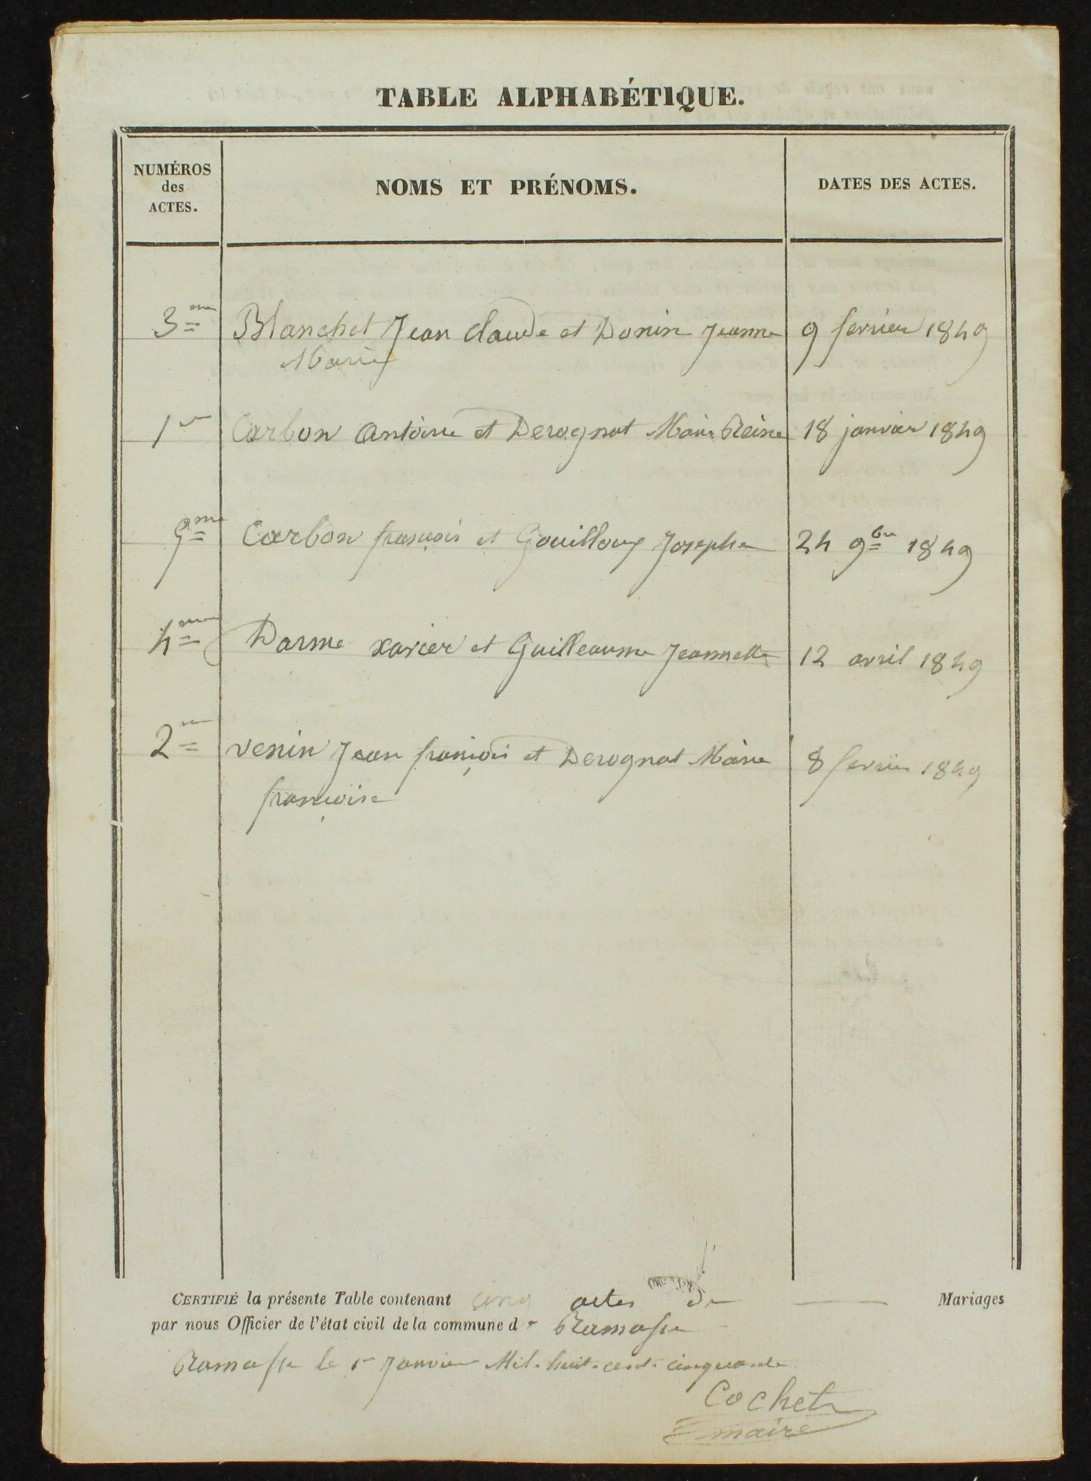 TABLE ALPHABÉTIQUE.
NUMÉROS
des
ACTES.
NOMS ET PRÉNOMS.
DATES DES ACTES.
3me Blanchet Jean Claude et Donin Jeanne 9 fevrier 1849
Marie
1er Carbon Antoine et Derognat Marie Reine 18 janvier 1849
5me Carbon françois et Gouilloux Josephe 24 9bre 1849
4me Darme xavier et Guilleaume Jeannette 12 avril 1849
2me venin Jean françois et Derognat Marie 8 fevrier 1849
françoise
CERTIFIÉ la présente Table contenant cinq actes de Mariages
par nous Officier de l'état civil de la commune de Ramasse
Ramasse le 1er Janvier Mil-huit-cent-cinquante
Cochet
maire